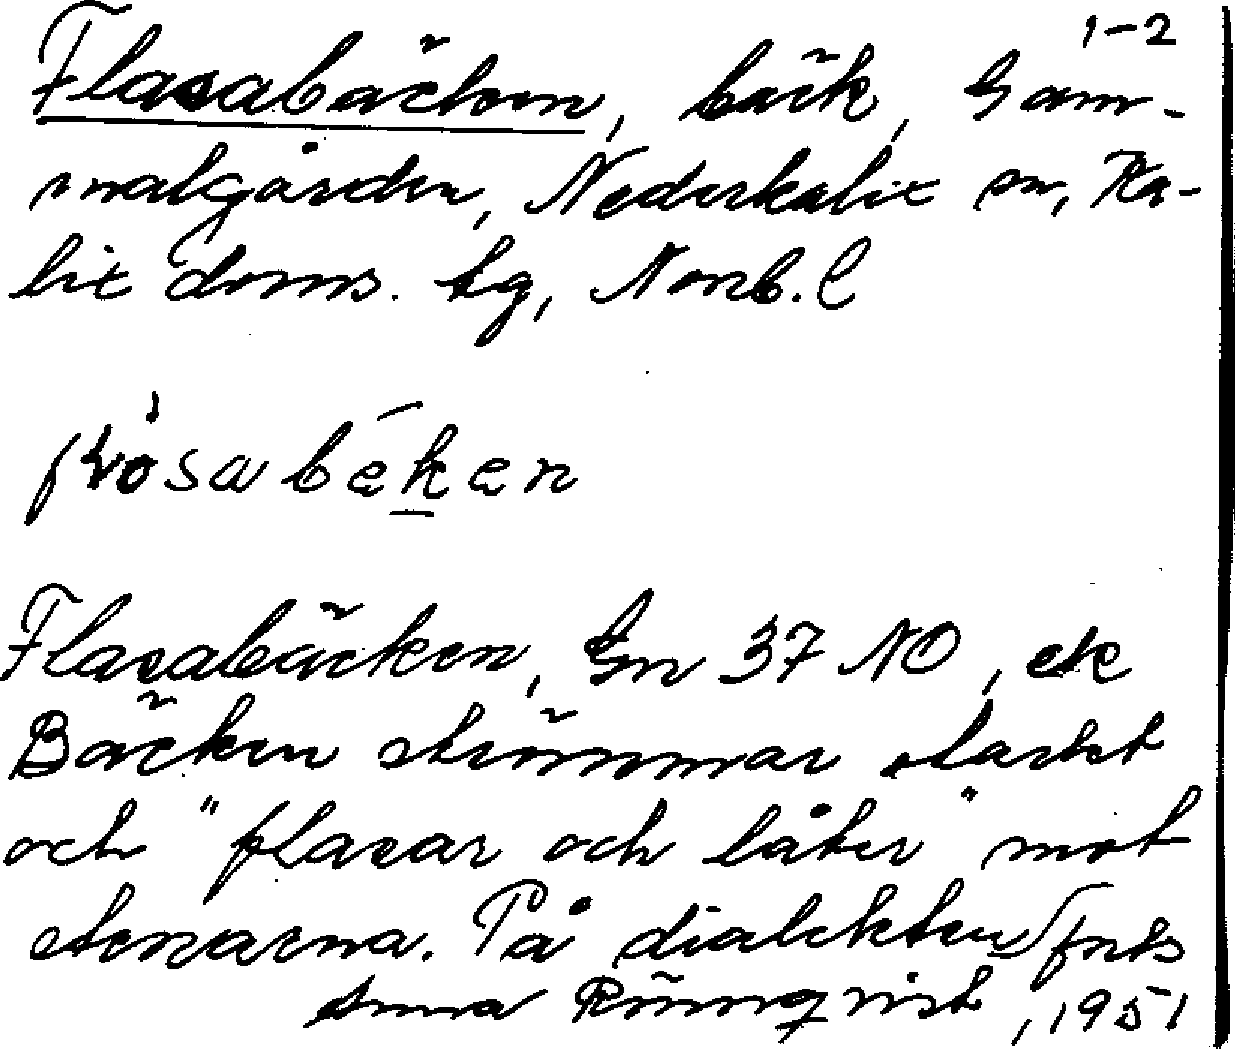 1-2
Flasabäcken, bäck, Gam-
malgården, Nederkalix sn, Ka-
lix doms. tg, Norrb. l
Flasabäcken, Gn 37 NO, ek
Bäcken strömmar starkt
och "flasar och låter" mot
stenarna. På dialekten forts
Anna Rönnqvist, 1951